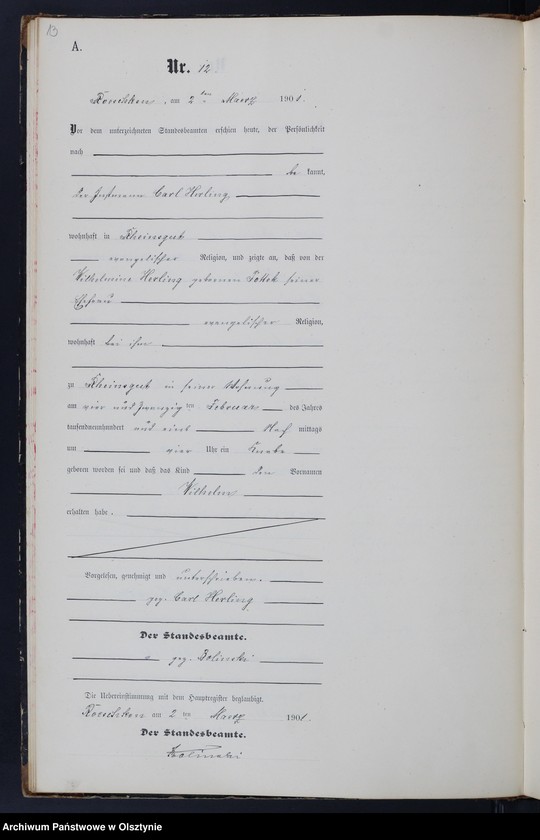 13
A.
Nr. 12
am 2ten März 1901.
Vor dem unterzeichneten Standesbeamten erschien heute, der Persönlichkeit
nach
be kannt,
der Instmann Carl Herling,
wohnhaft in Rheinsgut
evangelischer Religion, und zeigte an, daß von der
Wilhelmine Herling geborenen seiner
Ehefrau
evangelischer Religion,
wohnhaft bei ihm
zu Rheinsgut in seiner Wohnung
am vier und zwanzig ten Februar des Jahres
tausendneunhundert und eins Nach mittags
um vier Uhr ein Knabe
geboren worden sei und daß das Kind den Vornamen
Wilhelm
erhalten habe.
Vorgelesen, genehmigt und unterschrieben.
gez. Carl Herling
Der Standesbeamte.
gez. Bolinski
Die Uebereinstimmung mit dem Hauptregister beglaubigt.
am 2 ten März 1901.
Der Standesbeamte.
Bolinski
Archiwum Państwowe w Olsztynie